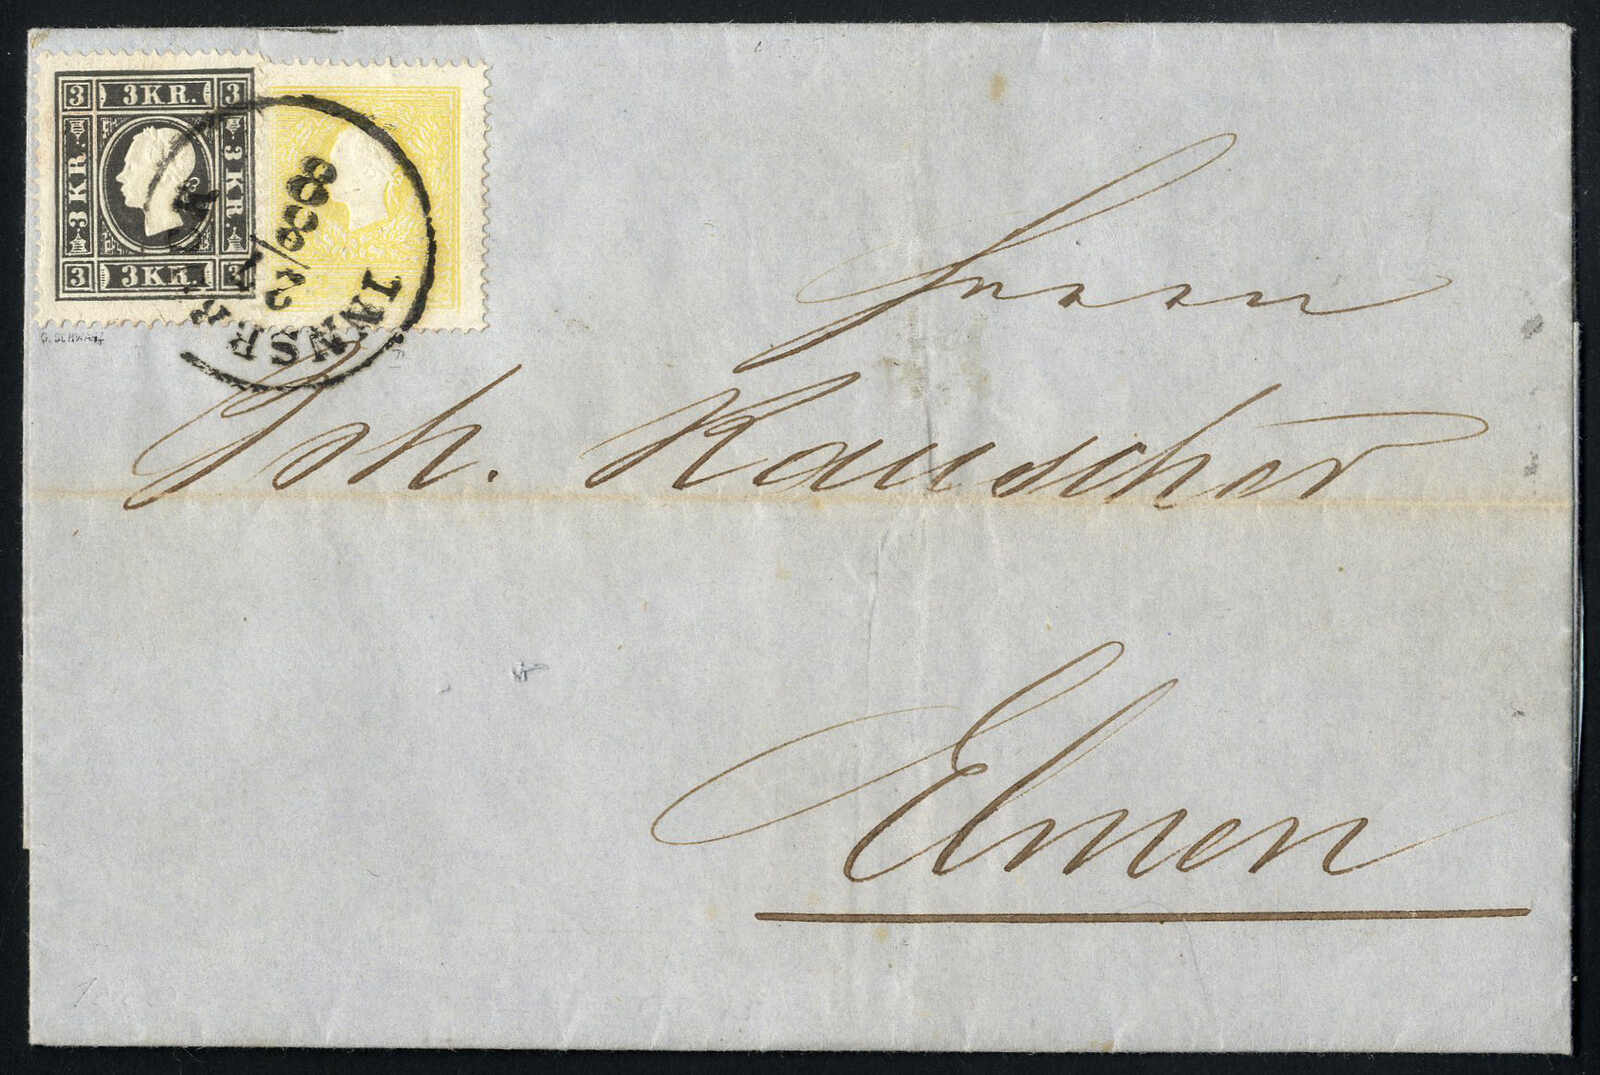 3 3KR. 3
3KR. 3KR.
3 3KR. 3
INNSBR
Herrn
Joh. Rauscher
Elmen